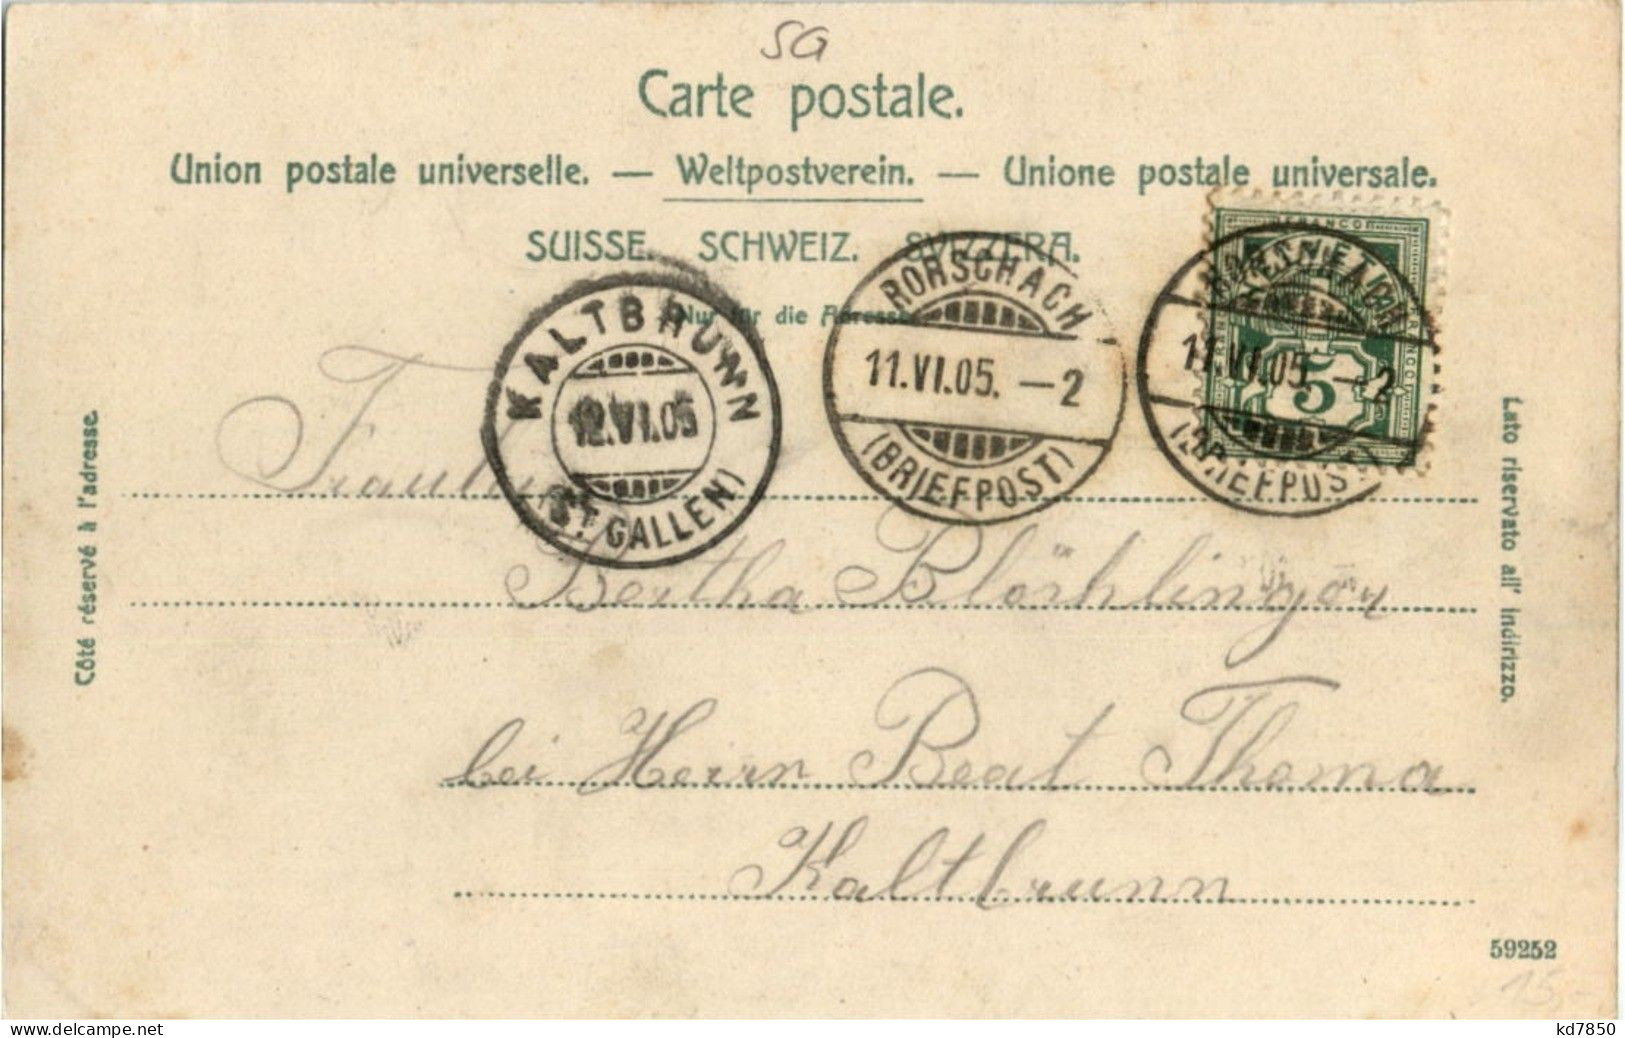 SG
Carte postale.
Union postale universelle. — Weltpostverein. — Unione postale universale.
SUISSE. SCHWEIZ. SVIZZERA.
Nur für die Adresse
KALTBRUNN
12.VI.05
(ST. GALLEN)
RORSCHACH
11.VI.05. –2
(BRIEFPOST)
FRANCO
5
11.VI.05. –2
(BRIEFPOST)
Côté réservé à l'adresse.
Lato riservato all' indirizzo.
Bertha Blöchlinger
bei Herrn Beat Thoma
Kaltbrunn
59252
15,-
kd7850